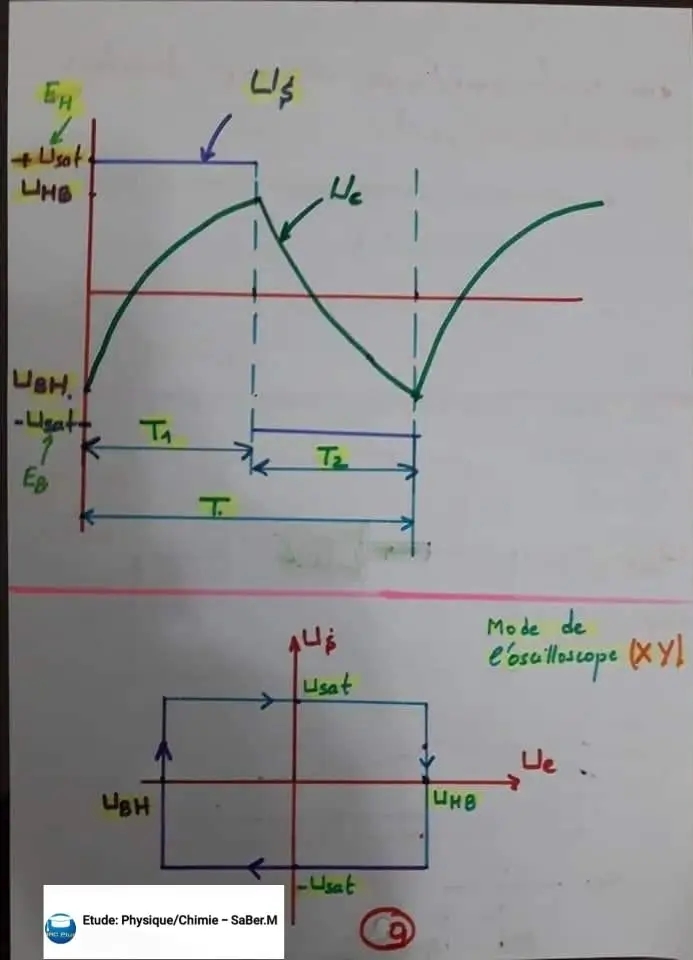 E_H
U_s
+ U_sat
U_HB
U_c
U_BH
- U_sat
T_1
T_2
E_B
T
Mode de
l'oscilloscope (XY)
U_s
U_sat
U_e
U_BH
U_HB
- U_sat
9
Etude: Physique/Chimie – SaBer.M